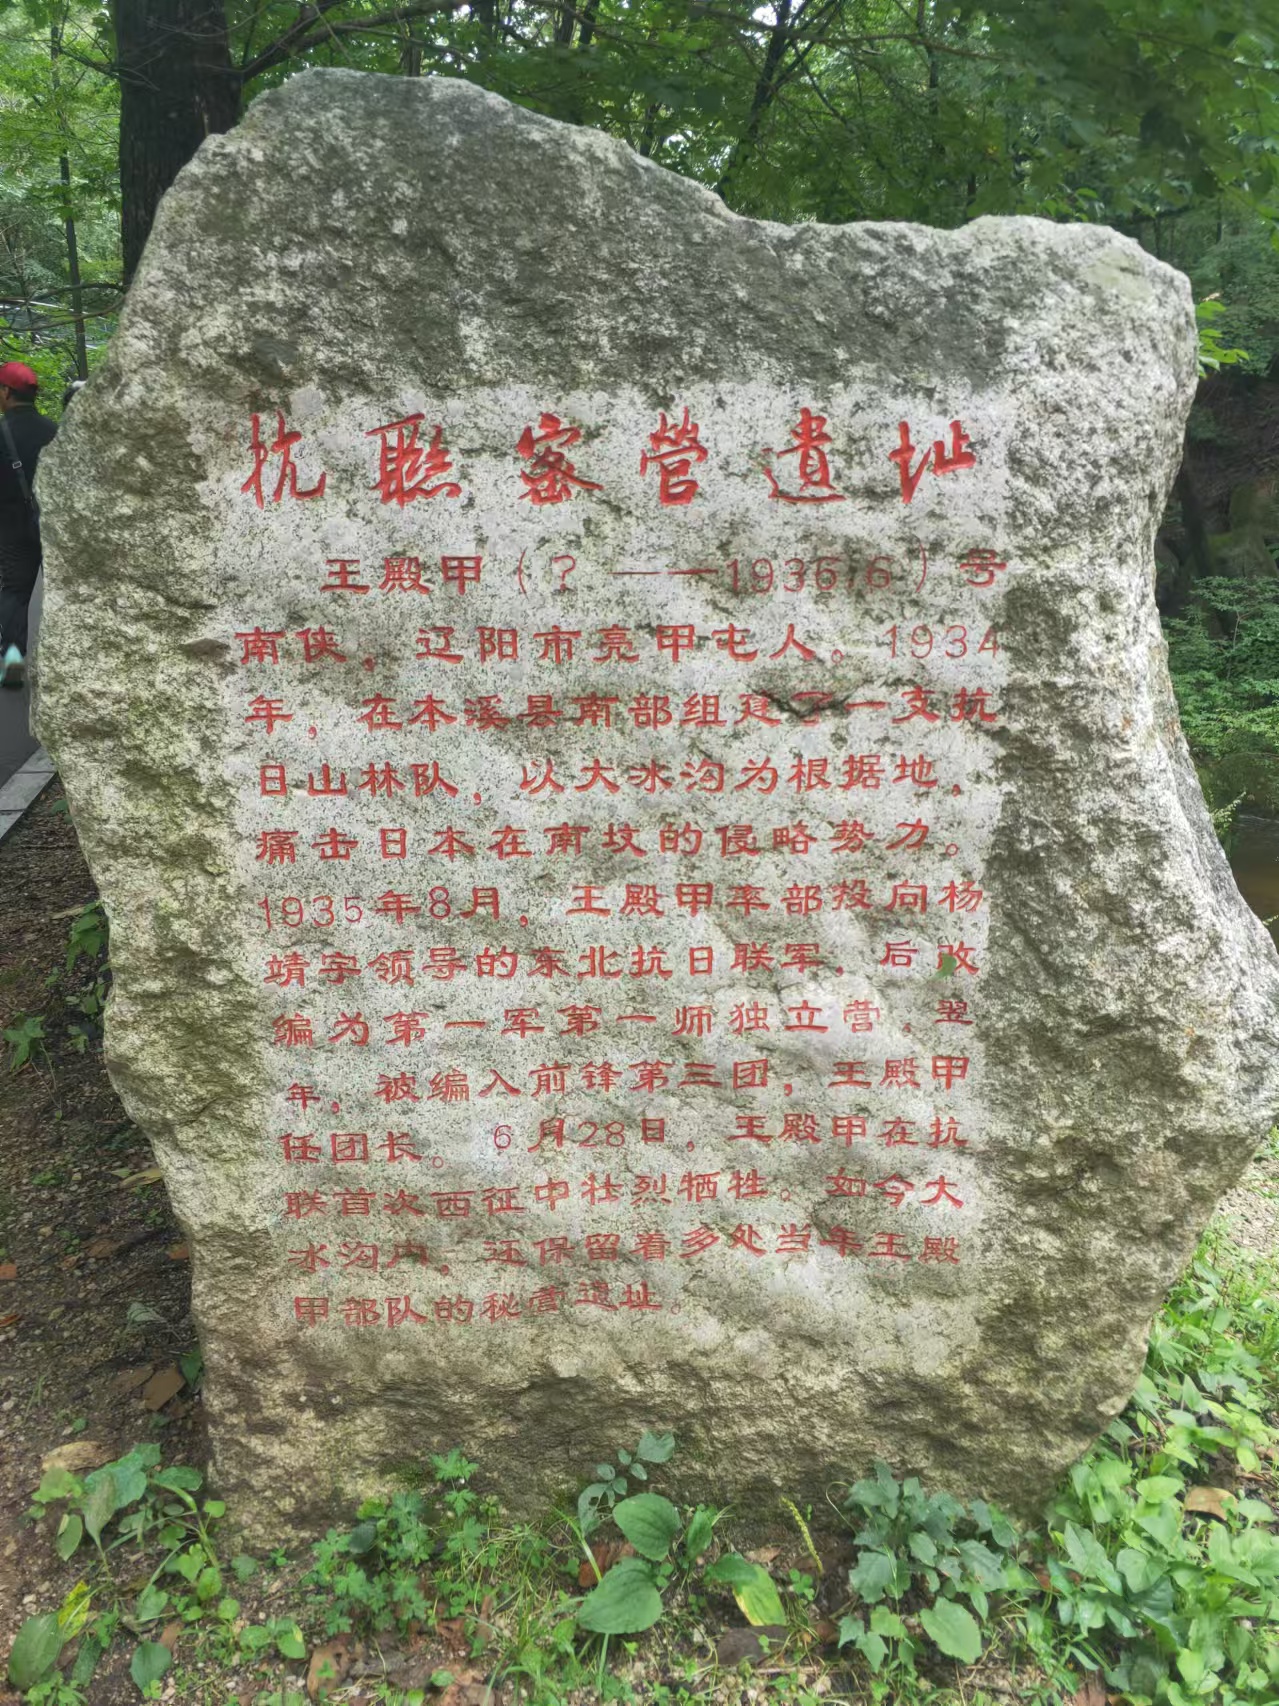 抗聯密營遺址
王殿甲（？——1936.6）号
南侠，辽阳市亮甲屯人。1934
年，在本溪县南部组建了一支抗
日山林队，以大冰沟为根据地，
痛击日本在南坟的侵略势力。
1935年8月，王殿甲率部投向杨
靖宇领导的东北抗日联军，后改
编为第一军第一师独立营。翌
年，被编入前锋第三团，王殿甲
任团长。6月28日，王殿甲在抗
联首次西征中壮烈牺牲。如今大
冰沟内，还保留着多处当年王殿
甲部队的秘营遗址。